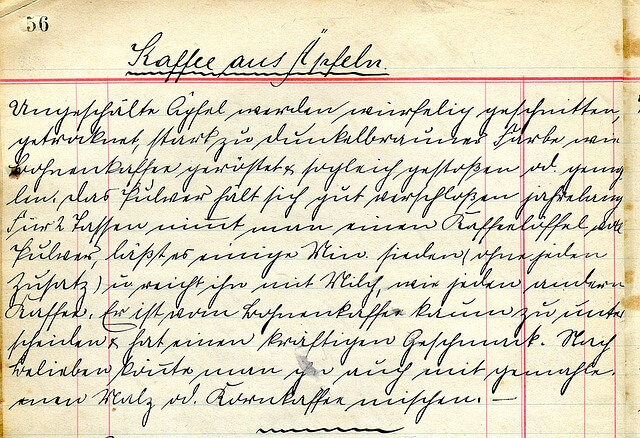 56
Kaffee aus Äpfeln.
Ungeschälte Äpfel werden würfelig geschnitten,
getrocknet, stark zu dunkelbrauner Farbe wie
Bohnenkaffee geröstet & sogleich gestoßen od. gemah
len. Das Pulver hält sich gut verschloßen jahrelang
Für 2 Tassen nimt man einen Kaffeelöffel voll
Pulver, läßt es einige Min. sieden (ohne jeden
Zusatz) u reicht ihn mit Milch, wie jeden andern
Kaffee. Er ist vom Bohnenkaffee kaum zu unter
scheiden & hat einen kräftigen Geschmack. Nach
Belieben könnte man ihn auch mit gemahle-
nen Malz od. Kornkaffee mischen. —